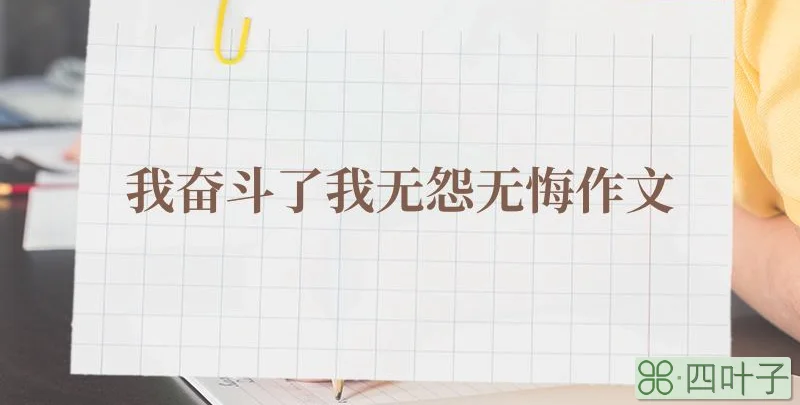 我奋斗了我无怨无悔作文
四叶子